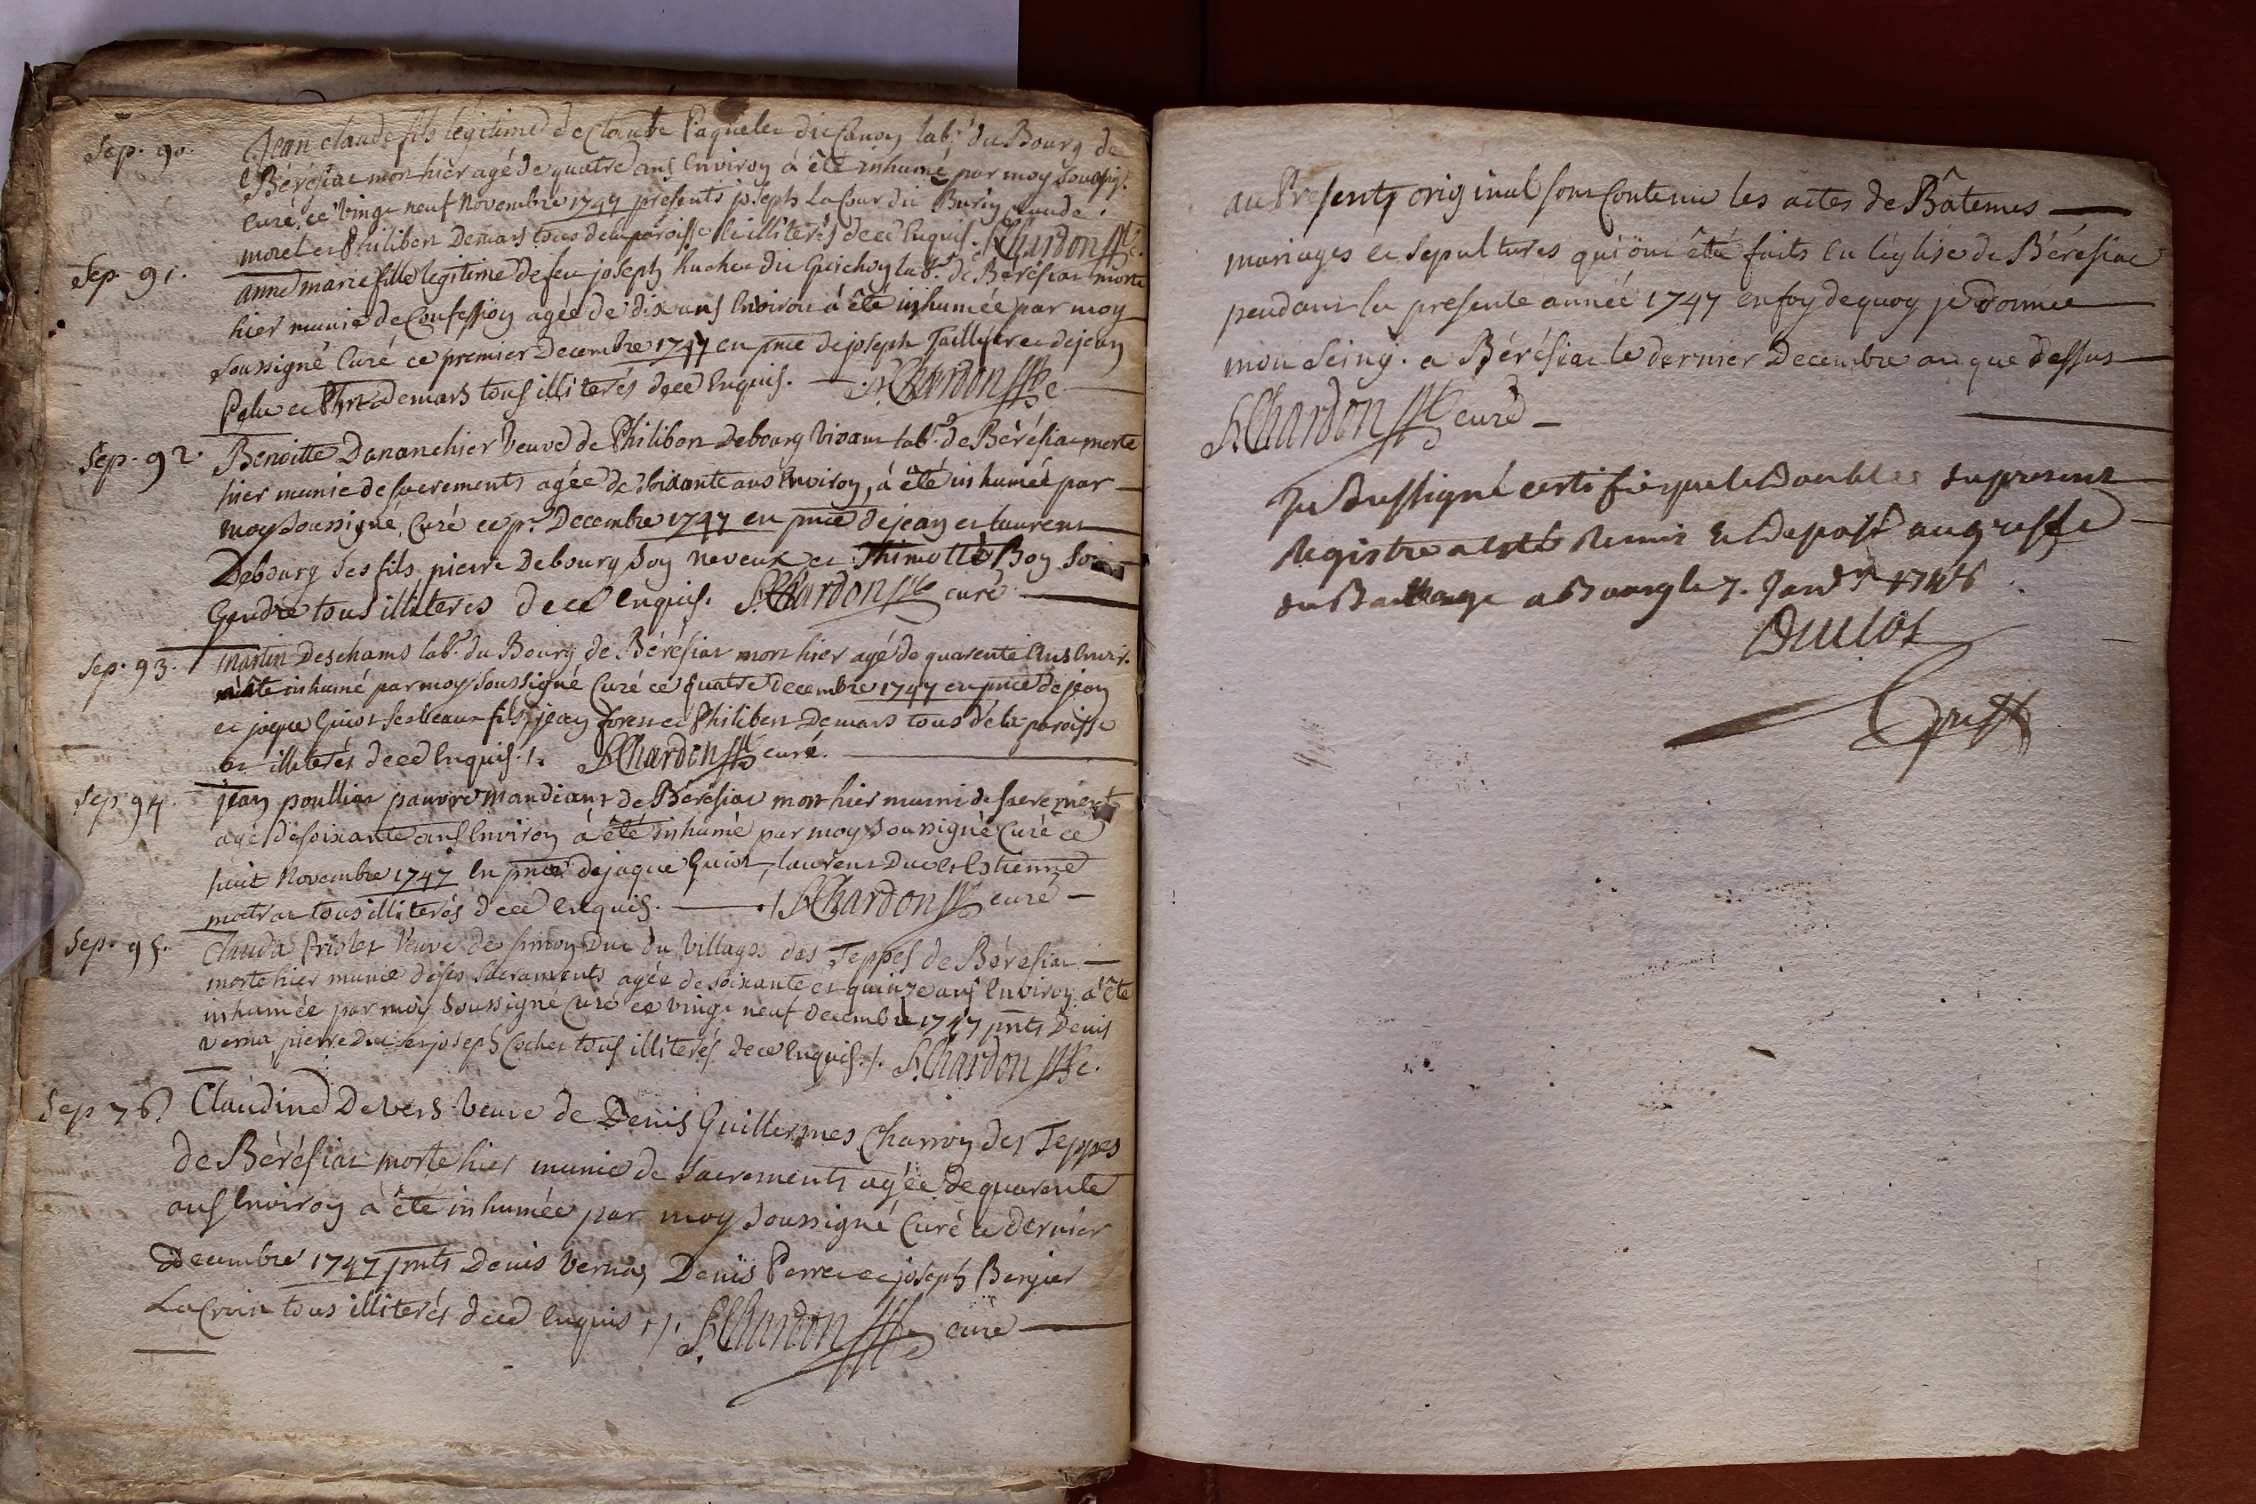 Sep. 90. Jean claude fils légitime de Claude Paquelet dit Canon lab.r du Bourg de
Bérésiat mort hier agé de quatre ans environ à été inhumé par moy soussig.
Curé, ce vingt neuf Novembre 1747 presents joseph La Cour dit Burin, claude
morel et Philibert Demars tous de la paroisse et illiterés de ce enquis. Chardon
Sep. 91. anne marie fille legitime de feu joseph huchet dit Guichon lab.r de Bérésiat morte
hier munie de Confession agée de dix ans environ à été inhumée par moy
soussigné Curé ce premier Decembre 1747 en pnce de joseph Taillyer et de jean
Pelu et Phrt demars tous illiterés de ce enquis. Chardon c
Sep. 92. Benoitte Dananchier veuve de Philibert Debourg vivant lab.r de Bérésiat morte
hier munie de sacrements agée de soixante ans environ, à été inhumée par
moy soussigné, Curé ce pr. Decembre 1747 en pnce de jean et laurent
Debourg ses fils, pierre Debourg son neveux et Thimotté Boy son
Gendre tous illiteres de ce enquis. Chardon curé
Sep. 93. martin Deschams lab.r du Bourg de Bérésiat mort hier agé de quarente ans envir.
à été inhumé par moy soussigné Curé ce quatre decembre 1747 en pnce de jean
et jaque Guiot ses beaux fils, jean foret et Philibert Demars tous de la paroisse
et illiterés de ce enquis. /. Chardon curé.
Sep. 94. jean poulliat pauvre mandiant de Bérésiat mort hier muni de sacrements
agé de soixante ans environ à été inhumé par moy soussigné Curé ce
huit Novembre 1747 en pnce de jaque Guiot, laurent Duc et Estienne
matrat tous illiterés de ce enquis. ./. Chardon curé
Sep. 95. Clauda Priolet veuve de simon Duc du village des Teppes de Bérésiat
morte hier munie de ses sacraments agée de soixante et quinze ans environ à été
inhumée par moy soussigné Curé ce vingt neuf decembre 1747 pnts Denis
verna pierre Duc et joseph Cochet tous illiterés de ce enquis. /. Chardon c.
Sep 76. Claudine Devers veuve de Denis Guillermes Charron des Teppes
de Bérésiat morte hier munie de sacrements agée de quarente
ans environ à été inhumée par moy soussigné Curé ce dernier
Decembre 1747 pnts Denis Vernas, Denis Perret et joseph Bergier
La Croix tous illiterés de ce enquis ./. Chardon curé
au Presents original sont Contenu les actes de Bâtemes
mariages et sepultures qui ont été faits en l'église de Bérésiat
pendant la presente année 1747 en foy de quoy je donne
mon seing. a Bérésiat le dernier Decembre an que dessus
Chardon curé
Je Soussigné certifie que le Double du present
Registre a esté Remis et Deposé au greffe
du Bailliage a Bourg le 7. Janv.r 1748
Duclos
Greff